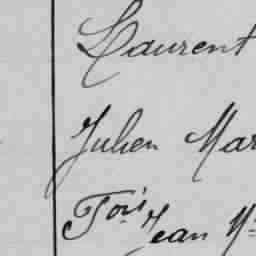 Laurent
Julien Mar
Fois Jean M